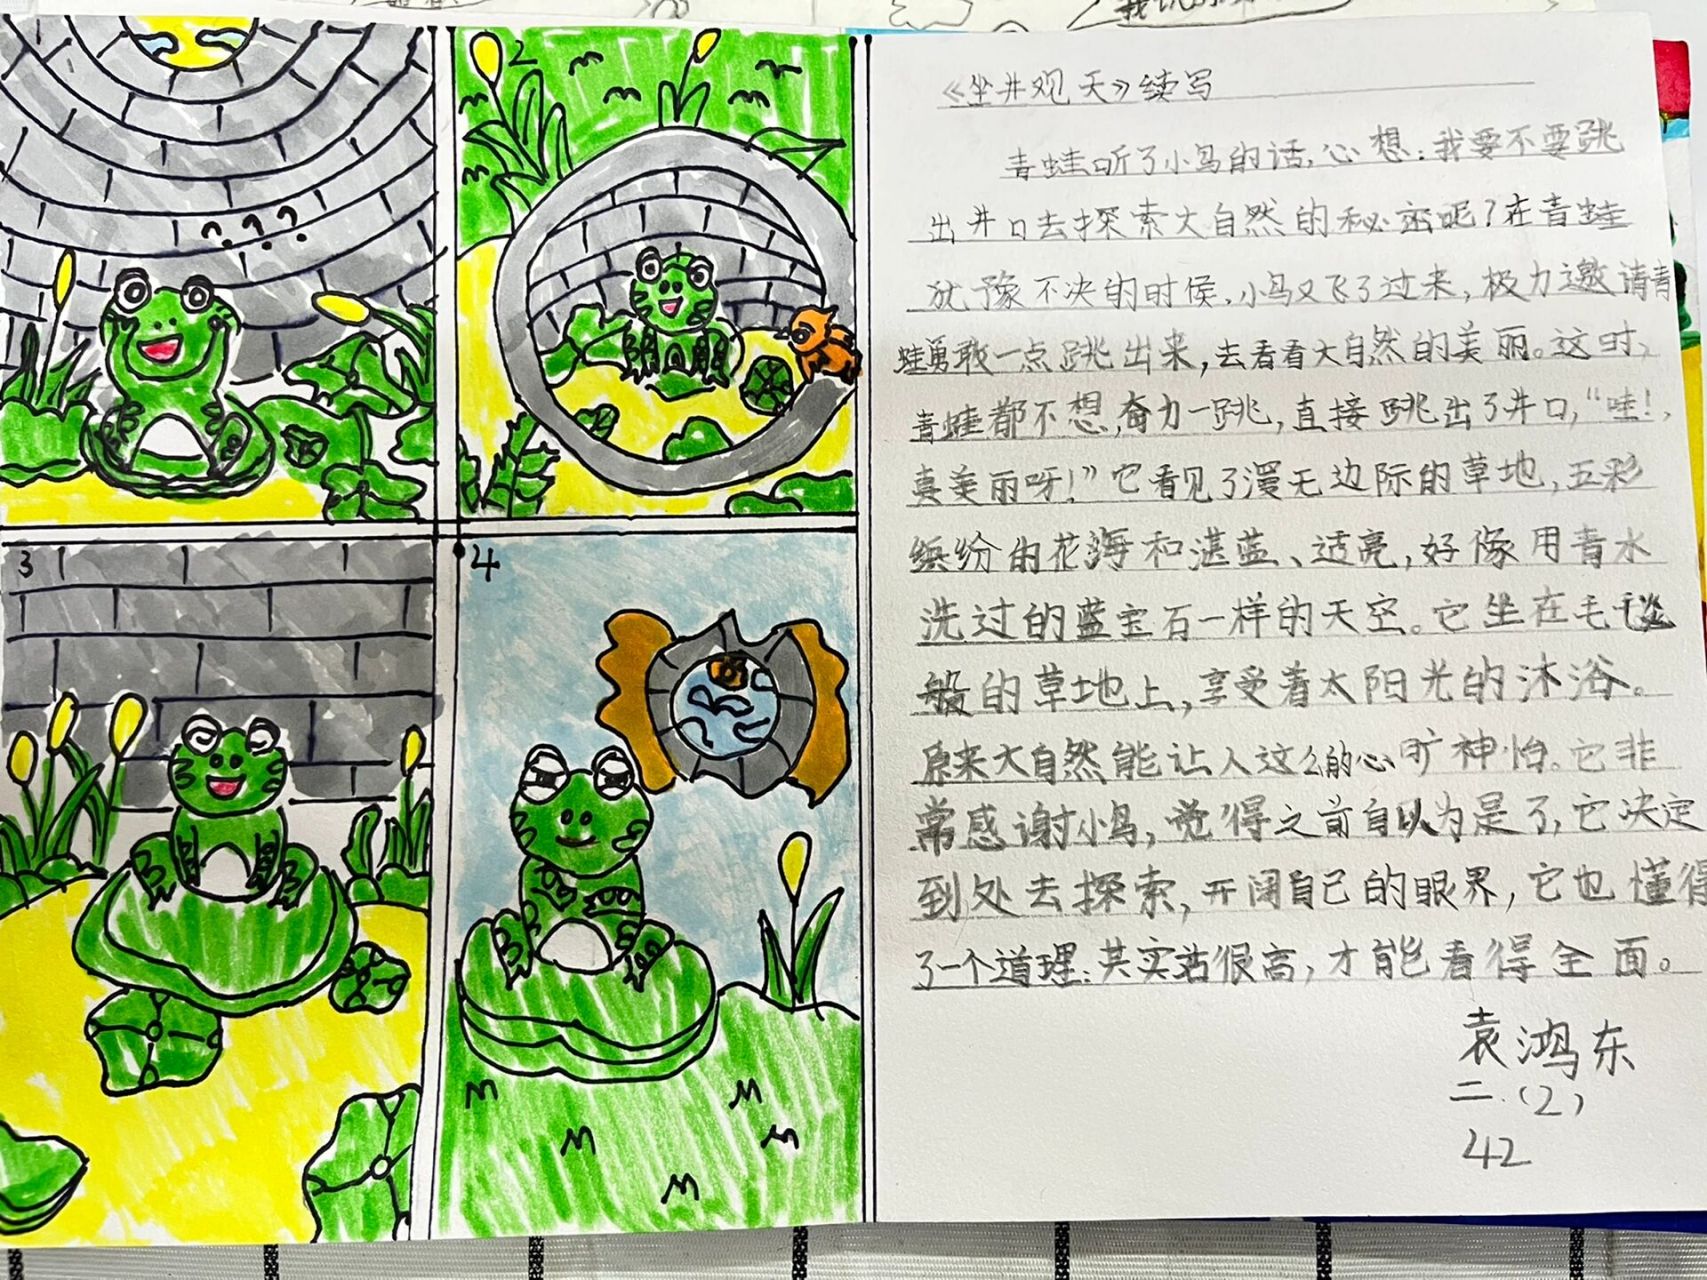 2
3
4
《坐井观天》续写
青蛙听了小鸟的话,心想:我要不要跳
出井口去探索大自然的秘密呢?在青蛙
犹豫不决的时候,小鸟又飞了过来,极力邀请青
蛙勇敢一点跳出来,去看看大自然的美丽。这时,
青蛙都不想,奋力一跳,直接跳出了井口,“哇!,
真美丽呀!”它看见了漫无边际的草地,五彩
缤纷的花海和湛蓝、透亮,好像用青水
洗过的蓝宝石一样的天空。它坐在毛毯
般的草地上,享受着太阳光的沐浴。
原来大自然能让人这么的心旷神怡。它非
常感谢小鸟,觉得之前自以为是了,它决定
到处去探索,开阔自己的眼界,它也懂得
了一个道理:其实站很高,才能看得全面。
袁鸿东
二.(2)
42